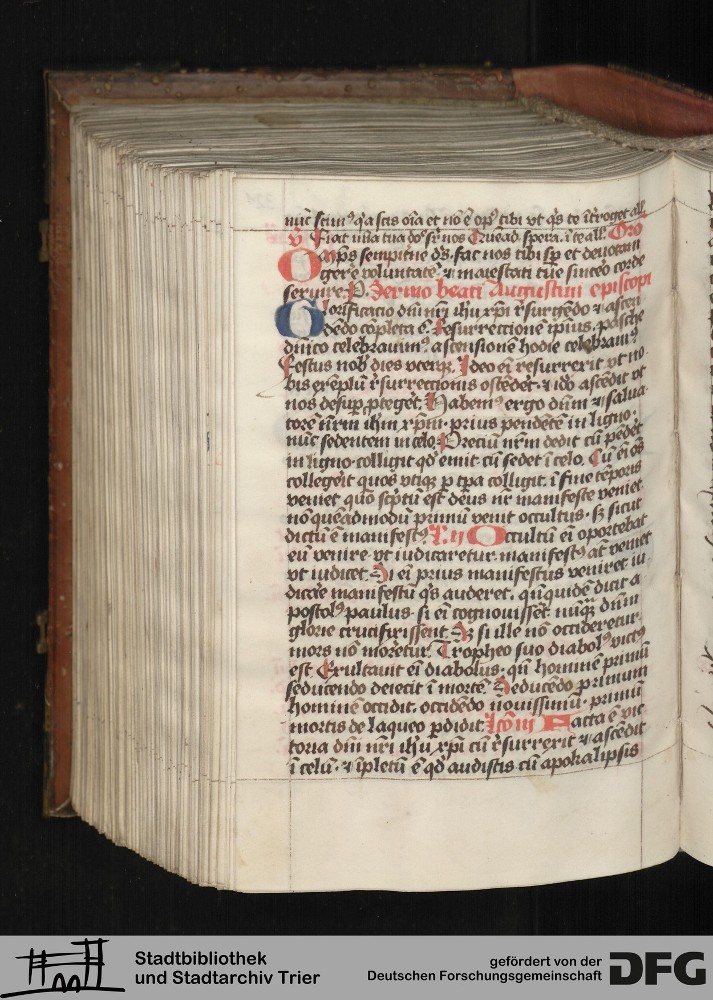 nūc scim⁹ q̄a scis oīa et nō ē op⁹ tibi vt q̄s te īt̄roget all̄
v̄ Fiat mīa tua dn̄e sr̄ nos Quēad. spera. ī te all̄ Oro
Omp̄s sempitne ds̄. fac nos tibi sp̄ et deuotam
gerē volūtatē ⁊ maiestati tue sincēo corde
seruire. P. Sermo beati Augustini episcopi
Glorificatio dnī nr̄i ih̄u xp̄i r̄surgēdo ⁊ ascen
dēdo cōpleta ē. Resurrectionē ip̄ius. pasche
dn̄ico celebrauim⁹. ascensionē hodie celebram⁹
Festus nob̄ dies vterq̄. Ideo ei resurrexit vt no
bis exēplū r̄surrectionis ostēdet ⁊ ido ascēdit vt
nos desup̱ ꝓteget. Habem⁹ ergo dn̄m ⁊ salua
torē nr̄m ih̄m xp̄m. prius pendētē in ligno.
nūc sedentem in celo. Preciū nr̄m dedit cū pēdet
in ligno. colligit qd̄ emit. cū sedet ī celo. Cū ei oēs
collegeit quos vtiq̄ ꝑ tpa colligit. ī fine tēporis
veniet quō scp̄tū est. deus nr̄ manifeste veniet
nō quēadmodū primū venit occultus. sꝫ sicut
dictū ē manifest⁹ L. ij Occultū ei oportebat
eū venire vt iudicaretur. manifest⁹ at̄ veniet
vt iudicet. Si ei prius manifestus veniret. iu
dicare manifestū q̄s auderet. qn̄quidē dicit a
postol⁹ paulus. si ei cognouissēt nūq̄ dn̄m
glorie crucifixissent. Sꝫ si ille nō occideretur
mors nō moretur. Tropheo suo diabol⁹ vict⁹
est Exultauit ei diabolus. qn̄ hominē primū
seducendo deiecit ī mortē. Seducēdo primum
hominē occidit. occidēdo nouissimū. primū
mortis de laqueo ꝑdidit. Lc̄o iij Facta ē vic
toria dnī nr̄i ih̄u xp̄i cū r̄surrexit ⁊ ascēdit
ī celū. ⁊ īpletū ē qd̄ audistis cū apokalipsis
Stadtbibliothek
und Stadtarchiv Trier
gefördert von der
Deutschen Forschungsgemeinschaft
DFG